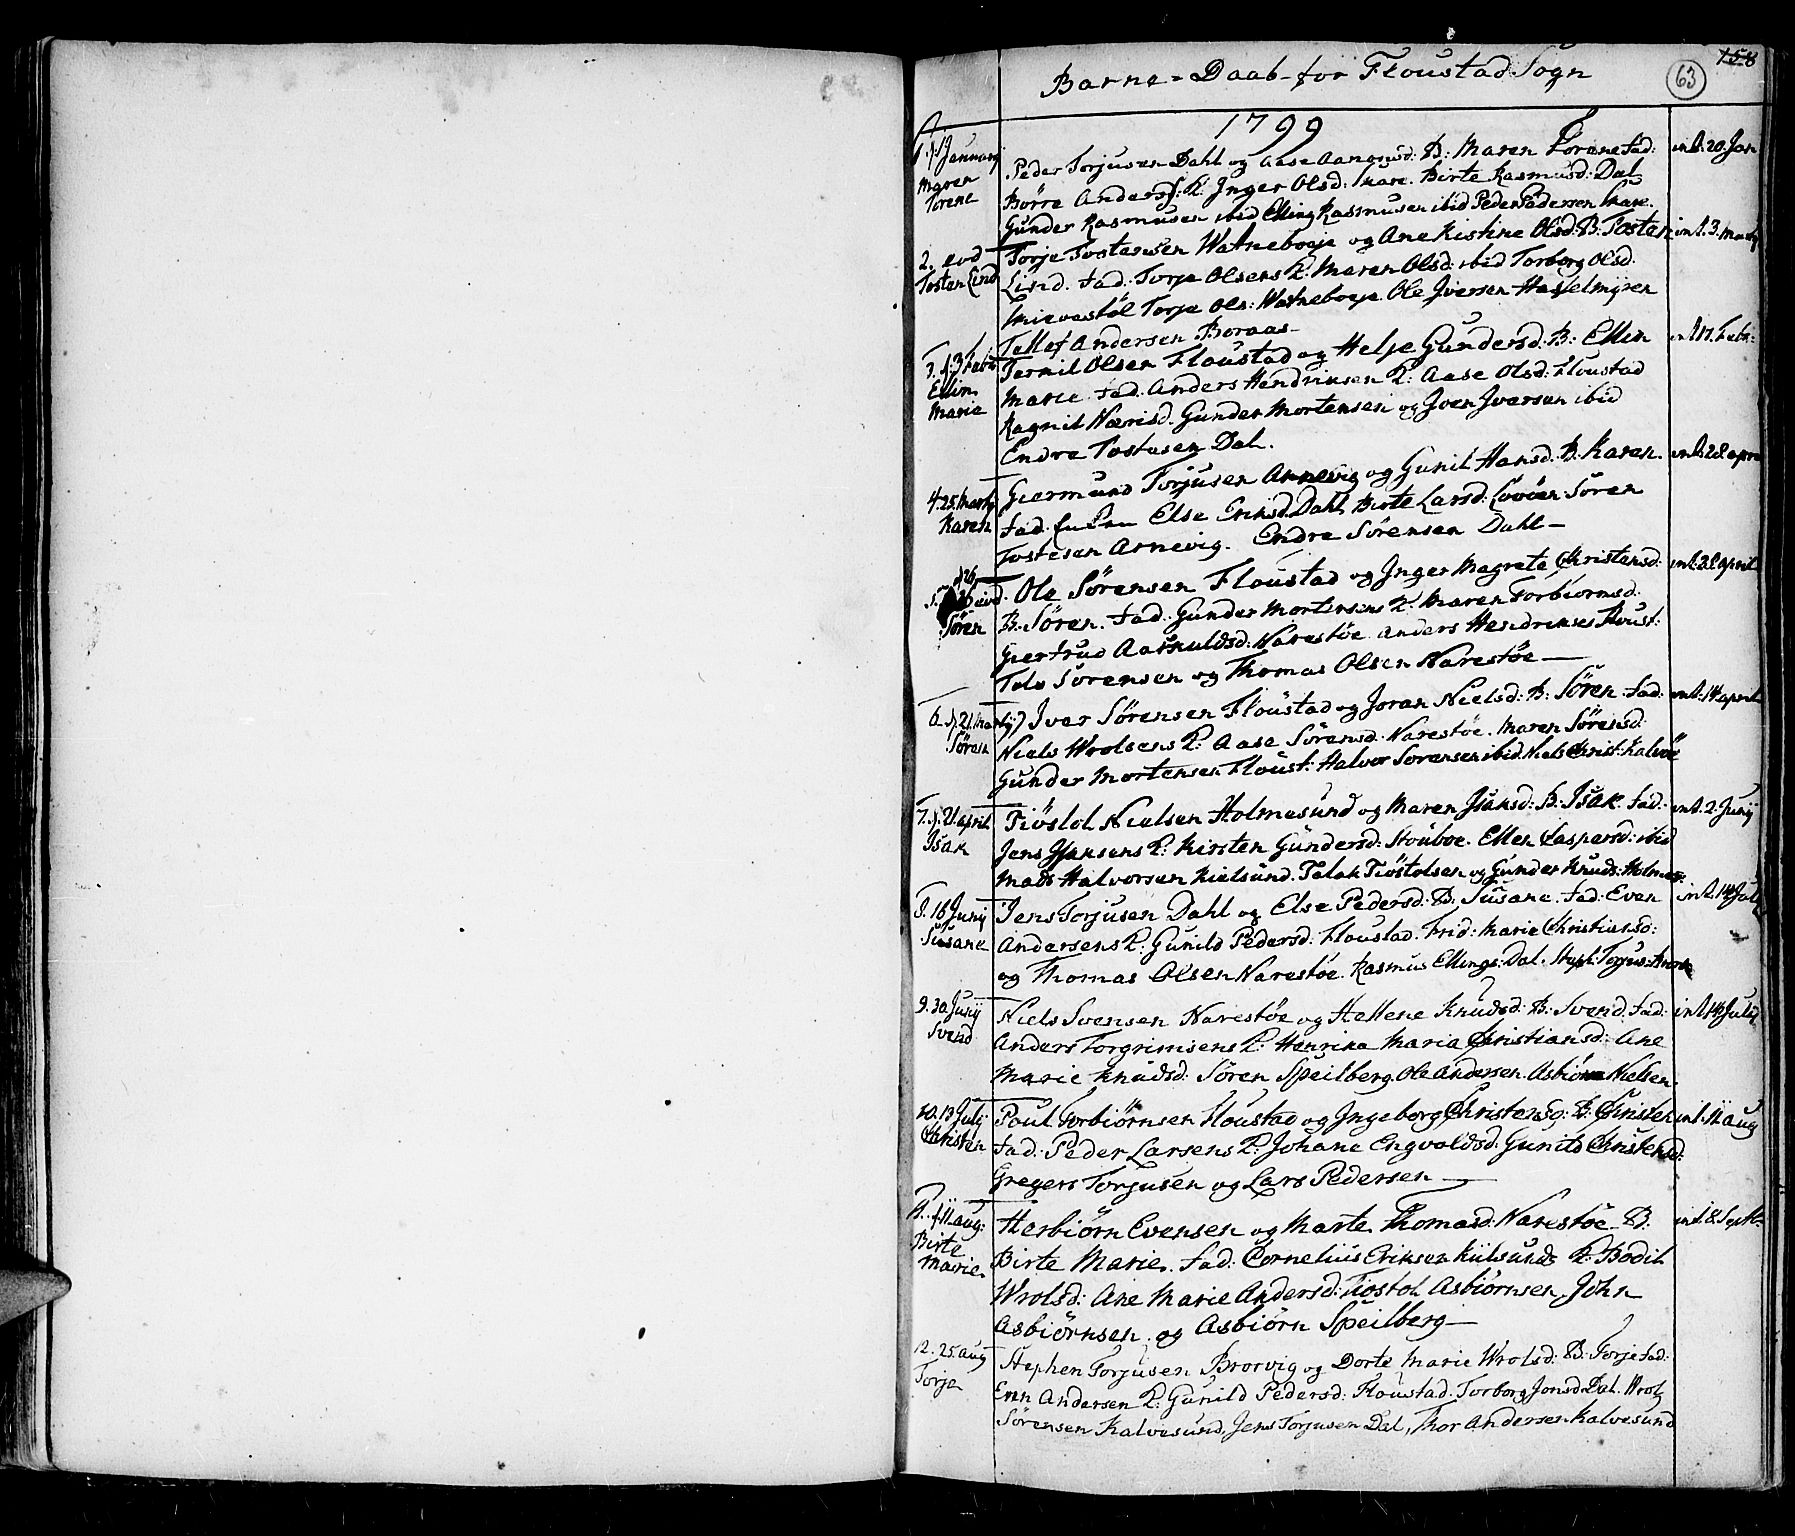 158
63
Barne-Daab for Floustad Sogn
1799
1. d. 1 January Maren Torene
Peder Torjusen Dahl og Aase Aanonsd: B: Maren Torene Fad: int. 20. Jan
Børre Anders: K. Inger Olsd: Skare. Birte Rasmusd: Dal
Gunder Rasmusen ibid Elling Rasmusen ibid Peder Pedersen Skare.
2. eod Tosten Lind
Torje Tostensen Watneboeje og Ane Kistine Olsd: B. Tosten int. 3. Marty
Lind. Fad. Torje Olsens K: Maren Olsd: ibid Torborg Olsd.
Torje Ols: Watneboeje. Ole Iversen Hasselmyren
Tellef Andersen Boraas
3. d. 3 Febr Ellin Marie
Termil Olsen Floustad og Helje Gundersd: B: Ellin int. 17. Febr:
Marie Fad. Anders Hendriksen K: Aase Olsd: Floustad
Ragnil Nærisd. Gunder Mortensen og Iver Iversen ibid
Endre Tostesen Dal.
4. 25. Marty Karen
Giermund Torjusen Arnevig og Gunil Hansd. B. Karen. int. 28 apri
Fad. Else Eriksd. Dahl Birte Larsd: Søren
Tostesen Arnevig. Endre Sørensen Dahl
5. d 26 eod. Søren
Ole Sørensen Floustad og Inger Magrete Christensd. int. 28 april
B. Søren. Fad. Gunder Mortensens K. Maren Torbiornsd.
Giertrud Aasuldsd: Narestøe Anders Hendrikses Floust:
Tolv Sørensen og Thomas Olsen Narestøe
6. d. 21. Marty Søren
Ivar Sørensen Floustad og Joran Nielsd: B: Søren. Fad: int. 14 april
Niels Wrolsens K: Aase Sørensd. Narestøe. Maren Sørensd:
Gunder Mortensen Floust: Halvor Sørensen ibid. Niels Christ: Kalvøe
7. d. 21. april Isak
Tiøstol Nielsen Holmesund og Maren Isaksd: B: Isak. Fad. int. 2. Juny
Jens Jsaksens K: Kirsten Gundersd: Stouboe. Ellen Caspersd: ibid
Mads Halvorsen Kielsund. Talak Tiøstolsen og Gunder Knuds: Holmes:
8. 16 Juny Susane
Jens Torjusen Dahl og Else Pedersd: B. Susane. Fad: Even int. 14 July
Andersens K: Gunild Pedersd: Floustad. Frid: Marie Christiansd:
og Thomas Olsen Narestøe. Rasmus Ellings: Dal. Steph: Torjus:
9. 30 Juny Svend
Niels Svensen Narestøe og Hellene Knudsd: B. Svend. Fad: int. 14 July
Anders Torgrimsens K: Henrika Maria Christiansd: Ane
Marie Knudsd: Søren Speilberg. Ole Andersen. Asbiørn Nielsen.
10. 13 July Christen
Poul Torbiørnsen Floustad og Ingeborg Christensd: B: Christen int. 11 aug
Fad: Peder Larsens K: Johane Engvoldsd: Gunild Christensd:
Gregers Torjusen og Lars Pedersen
11. d. 11. aug: Birte Marie
Herbiørn Evensen og Marte Thomasd: Narestøe B. int. 8. Septb.
Birte Marie. Fad: Cornelius Eriksen Kilsunds K: Bodil
Wrolsd: Ane Marie Andersd: Tiostol Asbiørnsen. John
Asbiørnsen. og Asbiørn Speilberg
12. 25. aug Torje
Stephen Torjusen Brorvig og Dorte Marie Wrolsd: B: Torje Fad:
Even Andersen K: Gunild Pedersd: Floustad. Torborg Jonsd Dal. Wrol
Sørensen Kalvesund, Jens Torjusen Dal, Thor Andersen Kalvesund